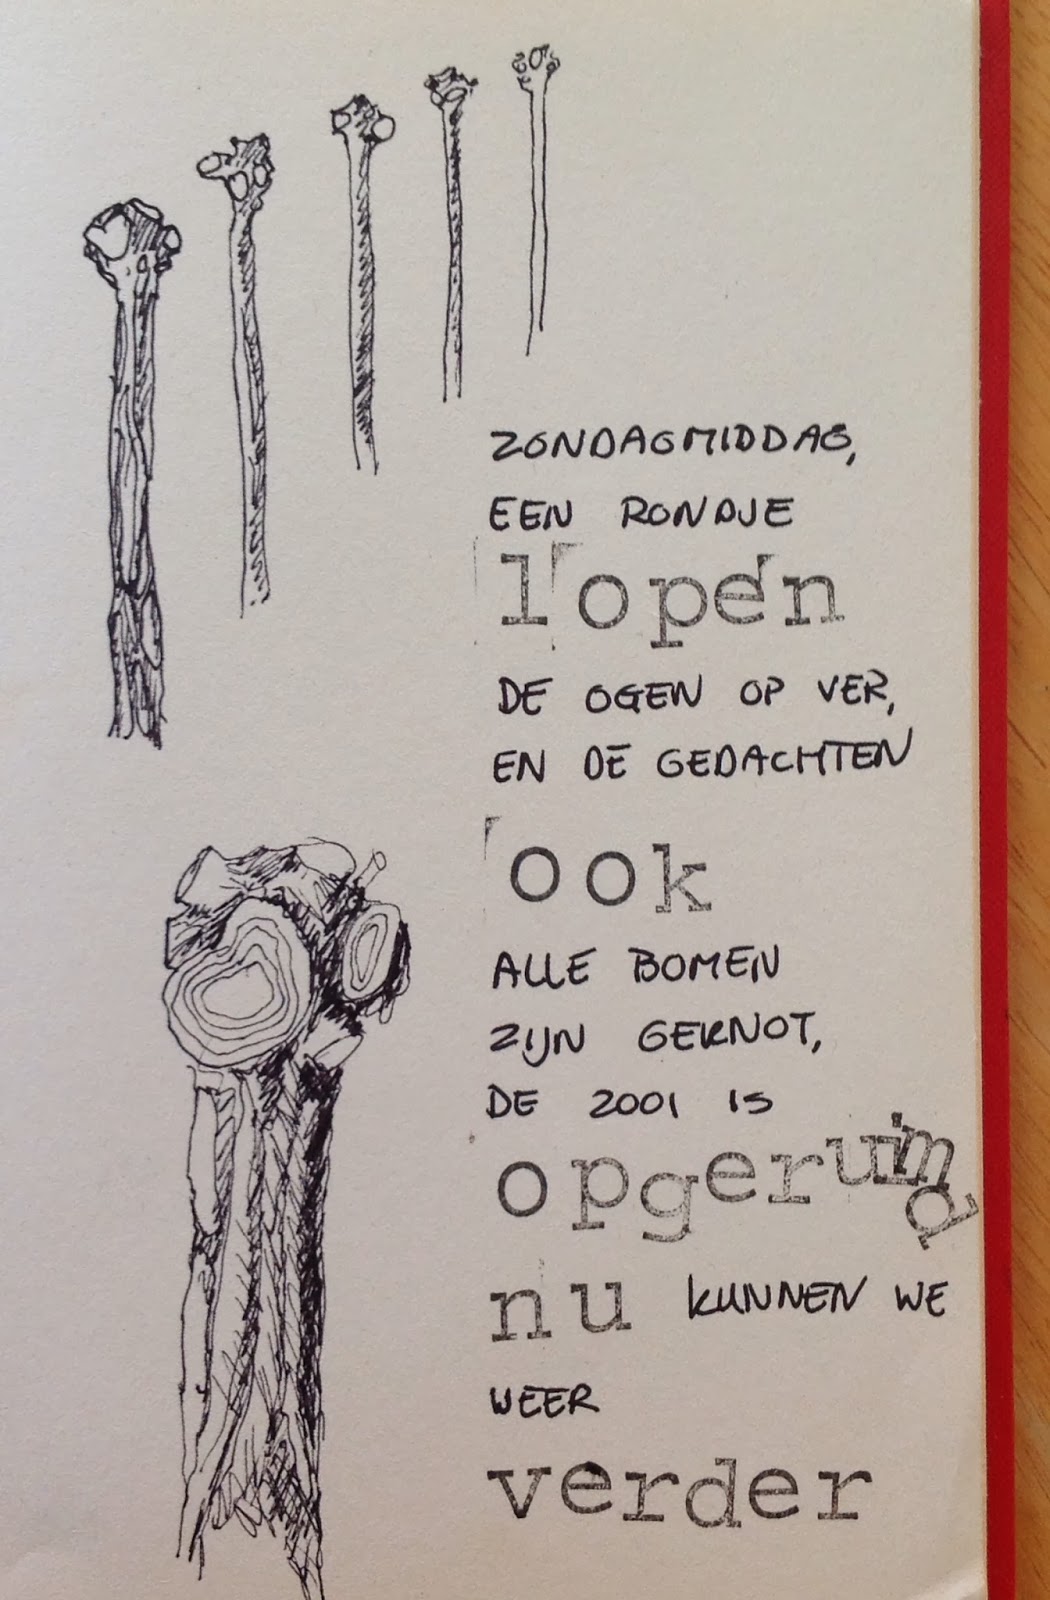 ZONDAGMIDDAG,
EEN RONDJE
lopen
DE OGEN OP VER,
EN DE GEDACHTEN
ook
ALLE BOMEN
ZIJN GEKNOT,
DE ZOOI IS
opgeruimd
nu KUNNEN WE
WEER
verder